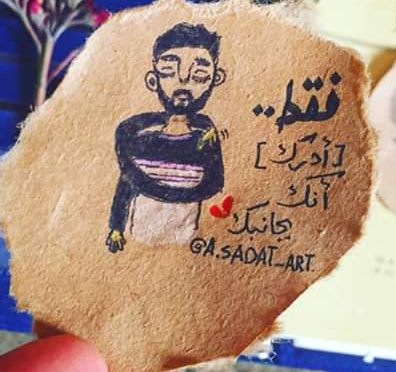 فقط..
[أدرك]
أنك
بجانبك
@A.SADAT_ART